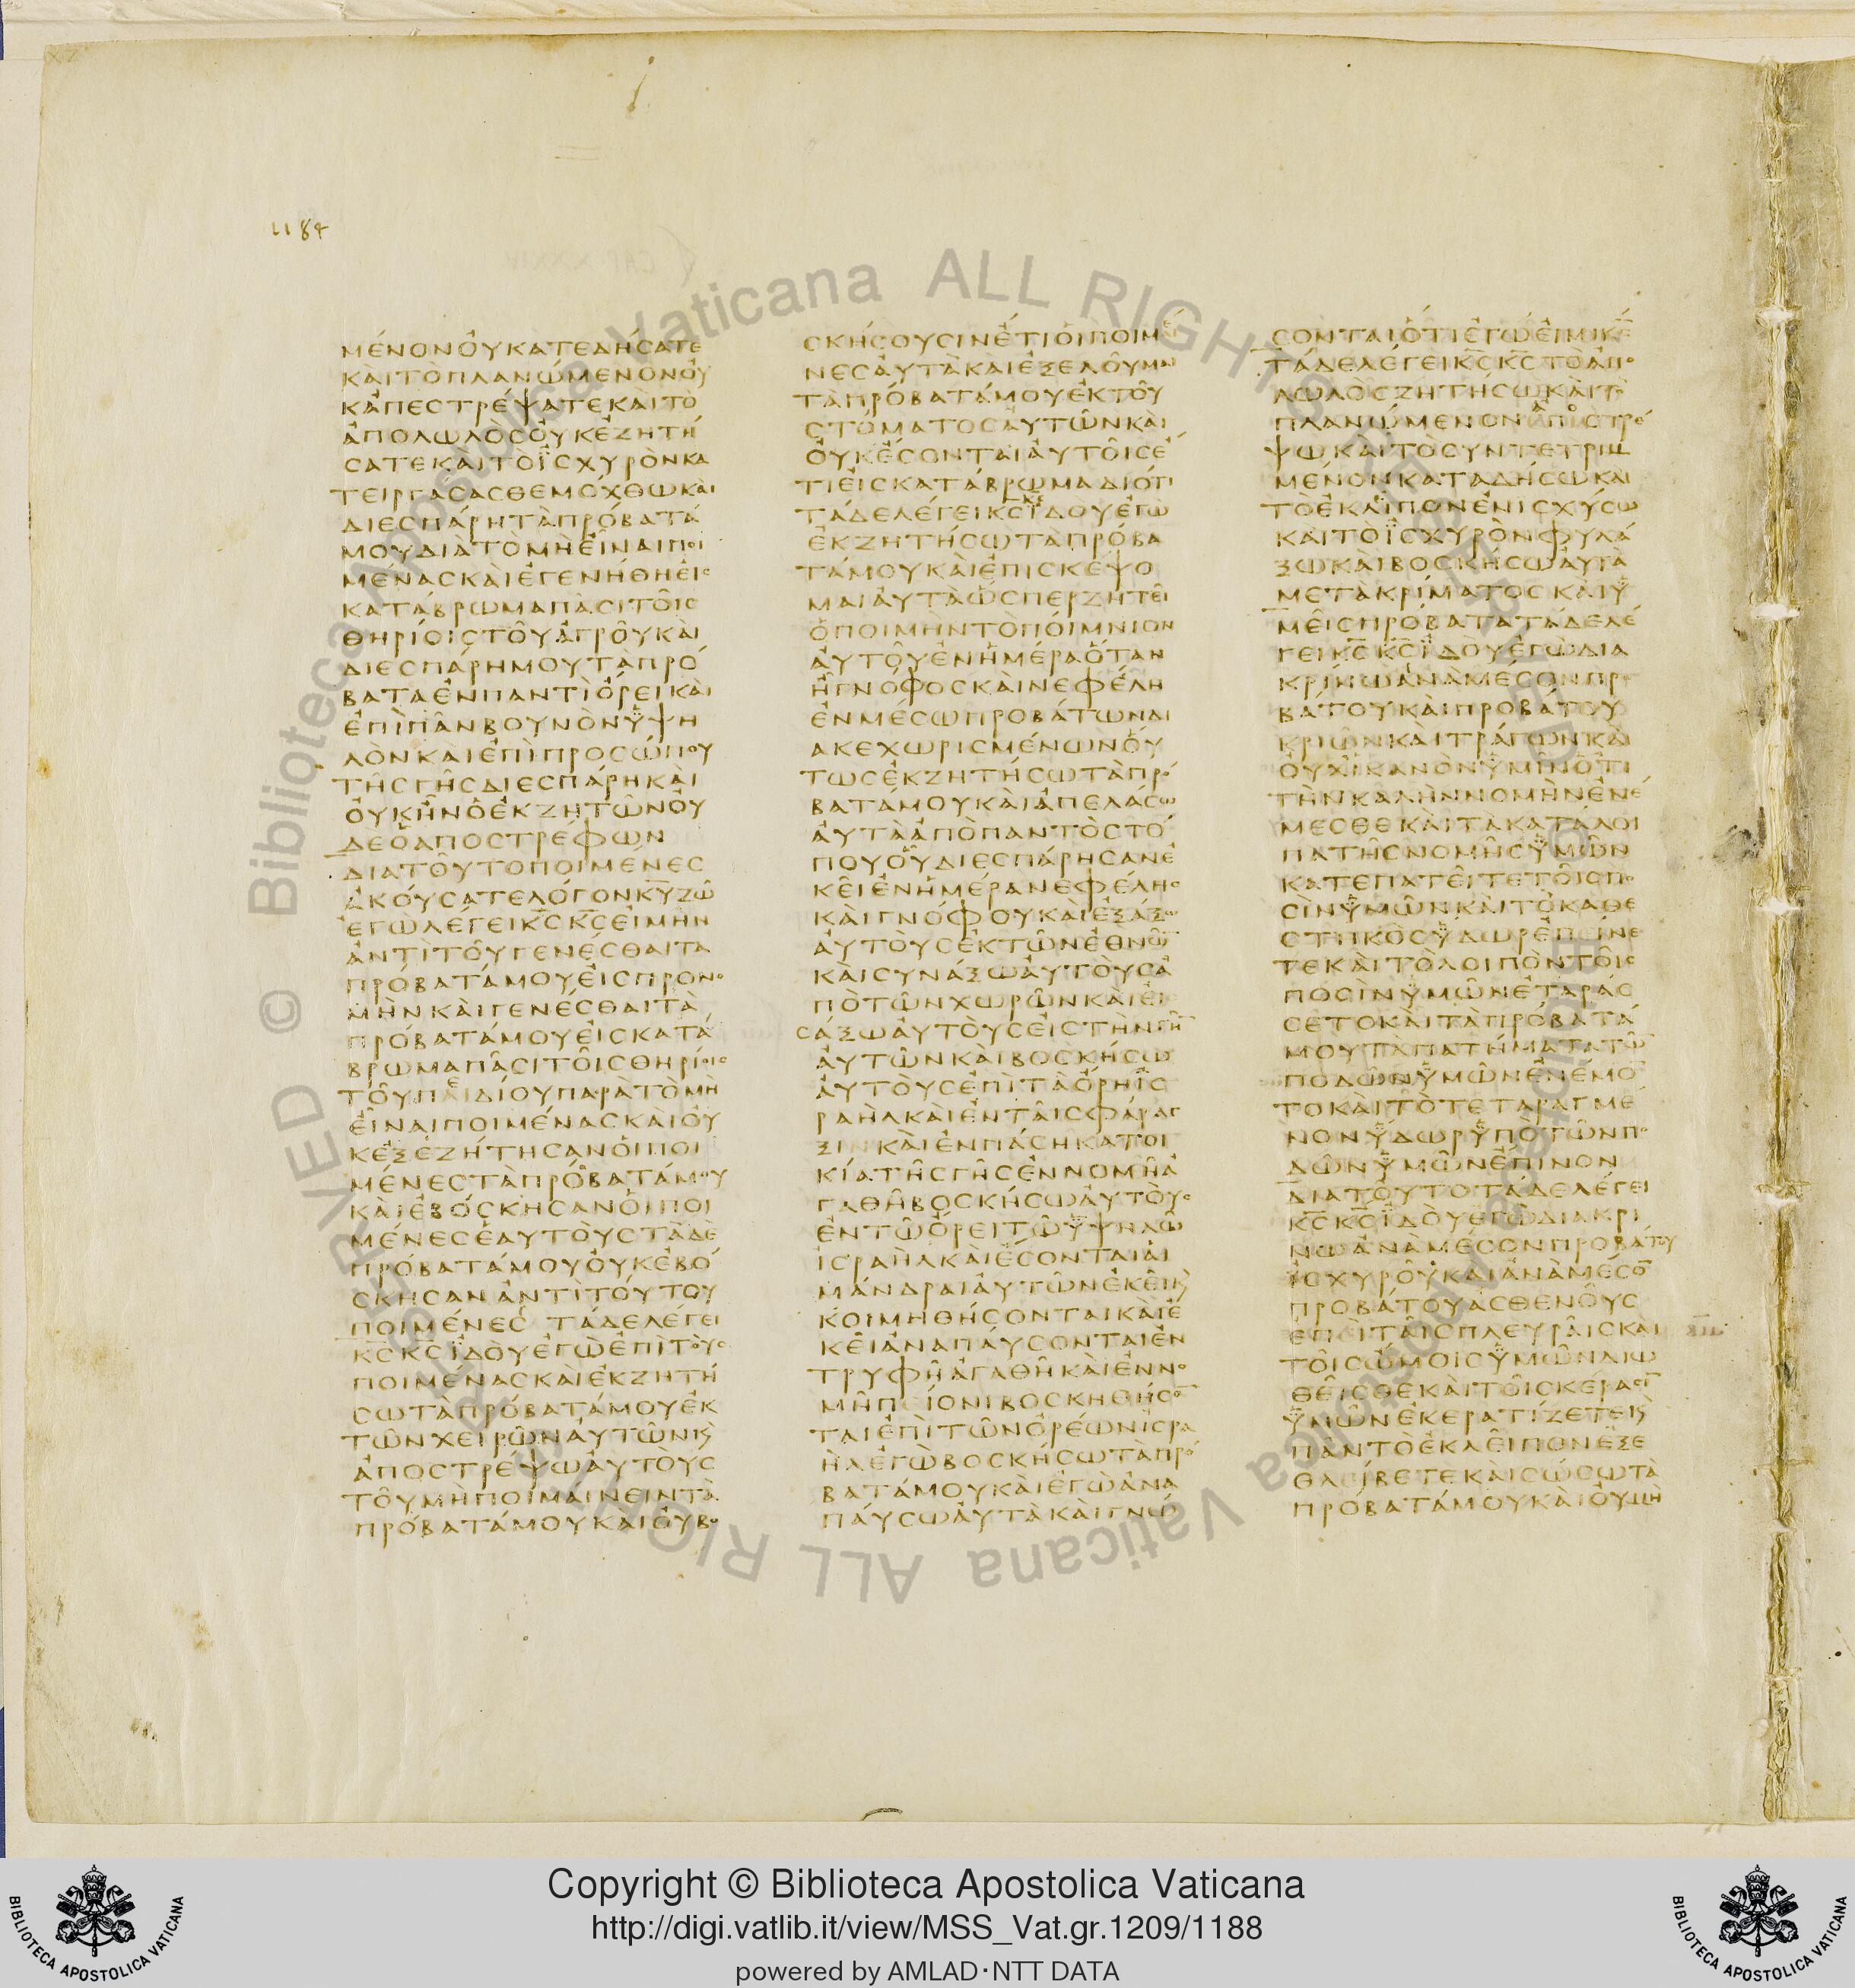 1184
ΜΕΝΟΝΟΥΚΑΤΕΔΗСΑΤΕ
ΚΑΙΤΟΠΛΑΝΩΜΕΝΟΝΟΥ
ΚΑΠΕСΤΡΕΨΑΤΕΚΑΙΤΟ
ΑΠΟΛΩΛΟСΟΥΚΕΖΗΤΗ
СΑΤΕΚΑΙΤΟΪСΧΥΡΟΝΚΑ
ΤΕΙΡΓΑСΑСΘΕΜΟΧΘΩΚΑΙ
ΔΙΕСΠΑΡΗΤΑΠΡΟΒΑΤΑ
ΜΟΥΔΙΑΤΟΜΗΕΙΝΑΙΠΟΙ
ΜΕΝΑСΚΑΙΕΓΕΝΗΘΗΕΙС
ΚΑΤΑΒΡΩΜΑΠΑСΙΤΟΙС
ΘΗΡΙΟΙСΤΟΥΑΓΡΟΥΚΑΙ
ΔΙΕСΠΑΡΗΜΟΥΤΑΠΡΟ
ΒΑΤΑΕΝΠΑΝΤΙΟΡΕΙΚΑΙ
ΕΠΙΠΑΝΒΟΥΝΟΝΫΨΗ
ΛΟΝΚΑΙΕΠΙΠΡΟСΩΠΟΥ
ΤΗСΓΗСΔΙΕСΠΑΡΗΚΑΙ
ΟΥΚΗΝΟΕΚΖΗΤΩΝΟΥ
ΔΕΟΑΠΟСΤΡΕΦΩΝ
ΔΙΑΤΟΥΤΟΠΟΙΜΕΝΕС
ΑΚΟΥСΑΤΕΛΟΓΟΝΚΥΖΩ
ΕΓΩΛΕΓΕΙΚСΚСΕΙΜΗΝ
ΑΝΤΙΤΟΥΓΕΝΕСΘΑΙΤΑ
ΠΡΟΒΑΤΑΜΟΥΕΙСΠΡΟΝΟ
ΜΗΝΚΑΙΓΕΝΕСΘΑΙΤΑ
ΠΡΟΒΑΤΑΜΟΥΕΙСΚΑΤΑ
ΒΡΩΜΑΠΑСΙΤΟΙСΘΗΡΙΟΙС
ΤΟΥΠΕΔΙΟΥΠΑΡΑΤΟΜΗ
ΕΙΝΑΙΠΟΙΜΕΝΑСΚΑΙΟΥ
ΚΕΞΕΖΗΤΗСΑΝΟΙΠΟΙ
ΜΕΝΕСΤΑΠΡΟΒΑΤΑΜΟΥ
ΚΑΙΕΒΟСΚΗСΑΝΟΙΠΟΙ
ΜΕΝΕСΕΑΥΤΟΥСΤΑΔΕ
ΠΡΟΒΑΤΑΜΟΥΟΥΚΕΒΟ
СΚΗСΑΝΑΝΤΙΤΟΥΤΟΥ
ΠΟΙΜΕΝΕС ΤΑΔΕΛΕΓΕΙ
ΚСΚСΪΔΟΥΕΓΩΕΠΙΤΟΥС
ΠΟΙΜΕΝΑСΚΑΙΕΚΖΗΤΗ
СΩΤΑΠΡΟΒΑΤΑΜΟΥΕΚ
ΤΩΝΧΕΙΡΩΝΑΥΤΩΝΚ
ΑΠΟСΤΡΕΨΩΑΥΤΟΥС
ΤΟΥΜΗΠΟΙΜΑΙΝΕΙΝΤΑ
ΠΡΟΒΑΤΑΜΟΥΚΑΙΟΥΒΟ
СΚΗСΟΥСΙΝΕΤΙΟΙΠΟΙΜΕ
ΝΕСΑΥΤΑΚΑΙΕΞΕΛΟΥΜΑΙ
ΤΑΠΡΟΒΑΤΑΜΟΥΕΚΤΟΥ
СΤΟΜΑΤΟСΑΥΤΩΝΚΑΙ
ΟΥΚΕСΟΝΤΑΙΑΥΤΟΙСΕ
ΤΙΕΙСΚΑΤΑΒΡΩΜΑΔΙΟΤΙ
ΤΑΔΕΛΕΓΕΙΚСΪΔΟΥΕΓΩ
ΕΚΖΗΤΗСΩΤΑΠΡΟΒΑ
ΤΑΜΟΥΚΑΙΕΠΙСΚΕΨΟ
ΜΑΙΑΥΤΑΩСΠΕΡΖΗΤΕΙ
ΟΠΟΙΜΗΝΤΟΠΟΙΜΝΙΟΝ
ΑΥΤΟΥΕΝΗΜΕΡΑΟΤΑΝ
ΗΓΝΟΦΟСΚΑΙΝΕΦΕΛΗ
ΕΝΜΕСΩΠΡΟΒΑΤΩΝΔΙ
ΑΚΕΧΩΡΙСΜΕΝΩΝΟΥ
ΤΩСΕΚΖΗΤΗСΩΤΑΠΡΟ
ΒΑΤΑΜΟΥΚΑΙΑΠΕΛΑСΩ
ΑΥΤΑΑΠΟΠΑΝΤΟСΤΟ
ΠΟΥΟΥΔΙΕСΠΑΡΗСΑΝΕ
ΚΕΙΕΝΗΜΕΡΑΝΕΦΕΛΗС
ΚΑΙΓΝΟΦΟΥΚΑΙΕΞΑΞΩ
ΑΥΤΟΥСΕΚΤΩΝΕΘΝΩ
ΚΑΙСΥΝΑΞΩΑΥΤΟΥСΑ
ΠΟΤΩΝΧΩΡΩΝΚΑΙΕΙ
СΑΞΩΑΥΤΟΥСΕΙСΤΗΝΓΗ
ΑΥΤΩΝΚΑΙΒΟСΚΗСΩ
ΑΥΤΟΥСΕΠΙΤΑΟΡΗΪС
ΡΑΗΛΚΑΙΕΝΤΑΙСΦΑΡΑΓ
ΞΙΝΚΑΙΕΝΠΑСΗΚΑΤΟΙ
ΚΙΑΤΗСΓΗСΕΝΝΟΜΗΑ
ΓΑΘΗΒΟСΚΗСΩΑΥΤΟΥС
ΕΝΤΩΟΡΕΙΤΩΫΨΗΛΩ
ΙСΡΑΗΛΚΑΙΕСΟΝΤΑΙΑΙ
ΜΑΝΔΡΑΙΑΥΤΩΝΕΚΕΙΚ
ΚΟΙΜΗΘΗСΟΝΤΑΙΚΑΙΕ
ΚΕΙΑΝΑΠΑΥСΟΝΤΑΙΕΝ
ΤΡΥΦΗΑΓΑΘΗΚΑΙΕΝΝΟ
ΜΗΠΕΙΟΝΙΒΟСΚΗΘΗСΟ
ΤΑΙΕΠΙΤΩΝΟΡΕΩΝΙСΡΑ
ΗΛΕΓΩΒΟСΚΗСΩΤΑΠΡΟ
ΒΑΤΑΜΟΥΚΑΙΕΓΩΑΝΑ
ΠΑΥСΩΑΥΤΑΚΑΙΓΝΩ
СΟΝΤΑΙΟΤΙΕΓΩΕΙΜΙΚС
ΤΑΔΕΛΕΓΕΙΚСΚСΤΟΑΠΟ
ΛΩΛΟСΖΗΤΗСΩΚΑΙΤΟ
ΠΛΑΝΩΜΕΝΟΝΑΠΟСΤΡΕ
ΨΩΚΑΙΤΟСΥΝΤΕΤΡΙΜ
ΜΕΝΟΝΚΑΤΑΔΗСΩΚΑΙ
ΤΟΕΚΛΙΠΟΝΕΝΙСΧΥСΩ
ΚΑΙΤΟΪСΧΥΡΟΝΦΥΛΑ
ΞΩΚΑΙΒΟСΚΗСΩΑΥΤΑ
ΜΕΤΑΚΡΙΜΑΤΟСΚΑΙΫ
ΜΕΙСΠΡΟΒΑΤΑΤΑΔΕΛΕ
ΓΕΙΚСΚСΪΔΟΥΕΓΩΔΙΑ
ΚΡΙΝΩΑΝΑΜΕСΟΝΠΡΟ
ΒΑΤΟΥΚΑΙΠΡΟΒΑΤΟΥ
ΚΡΙΩΝΚΑΙΤΡΑΓΩΝΚΑΙ
ΟΥΧΙΚΑΝΟΝΫΜΙΝΟΤΙ
ΤΗΝΚΑΛΗΝΝΟΜΗΝΕΝΕ
ΜΕСΘΕΚΑΙΤΑΚΑΤΑΛΟΙ
ΠΑΤΗСΝΟΜΗСΫΜΩΝ
ΚΑΤΕΠΑΤΕΙΤΕΤΟΙСΠΟ
СΙΝΫΜΩΝΚΑΙΤΟΚΑΘΕ
СΤΗΚΟСΫΔΩΡΕΠΕΙΝΕ
ΤΕΚΑΙΤΟΛΟΙΠΟΝΤΟΙС
ΠΟСΙΝΫΜΩΝΕΤΑΡΑС
СΕΤΟΚΑΙΤΑΠΡΟΒΑΤΑ
ΜΟΥΤΑΠΑΤΗΜΑΤΑΤΩ
ΠΟΔΩΝΫΜΩΝΕΝΕΜΟ
ΤΟΚΑΙΤΟΤΕΤΑΡΑΓΜΕ
ΝΟΝΫΔΩΡΫΠΟΤΩΝΠΟ
ΔΩΝΫΜΩΝΕΠΙΝΟΝ
ΔΙΑΤΟΥΤΟΤΑΔΕΛΕΓΕΙ
ΚСΚСΪΔΟΥΕΓΩΔΙΑΚΡΙ
ΝΩΑΝΑΜΕСΟΝΠΡΟΒΑΤΟΥ
ΪСΧΥΡΟΥΚΑΙΑΝΑΜΕСΟ
ΠΡΟΒΑΤΟΥΑСΘΕΝΟΥС
ΕΠΕΙΤΑΙСΠΛΕΥΡΑΙСΚΑΙ
ΤΟΙСΩΜΟΙСΫΜΩΝΔΙΩ
ΘΕΙСΘΕΚΑΙΤΟΙСΚΕΡΑСΙ
ΫΜΩΝΕΚΕΡΑΤΙΖΕΤΕΚ
ΠΑΝΤΟΕΚΛΕΙΠΟΝΕΞΕ
ΘΛΕΙΒΕΤΕΚΑΙСΩСΩΤΑ
ΠΡΟΒΑΤΑΜΟΥΚΑΙΟΥΜΗ
© Biblioteca Apostolica Vaticana ALL RIGHTS RESERVED
© Biblioteca Apostolica Vaticana ALL RIGHTS RESERVED
Copyright © Biblioteca Apostolica Vaticana
http://digi.vatlib.it/view/MSS_Vat.gr.1209/1188
powered by AMLAD·NTT DATA
BIBLIOTECA APOSTOLICA VATICANA
BIBLIOTECA APOSTOLICA VATICANA